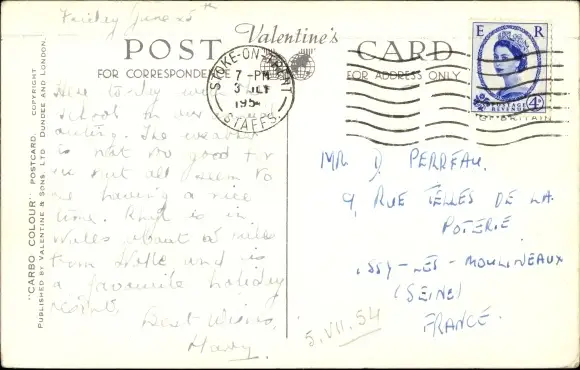 Friday June 25th
POST Valentine's CARD
FOR CORRESPONDENCE
FOR ADDRESS ONLY
STOKE-ON-TRENT
7-PM
3 JLY
195
STAFFS.
E R
POSTAGE
REVENUE
4D
OF BRITAIN
Here to-day with the
school on our
outing. The weather
is not so good for
us but all seem to
be having a nice
time. Rhyl is in
Wales about miles
from and is
a favourite holiday
resort.
Best Wishes,
Harry.
MR D. PERREAU.
9, RUE TELLES DE LA
POTERIE
ISSY-LES-MOULINEAUX
(SEINE)
FRANCE.
5.VII.54
"CARBO COLOUR" POSTCARD. COPYRIGHT
PUBLISHED BY VALENTINE & SONS, LTD DUNDEE AND LONDON.